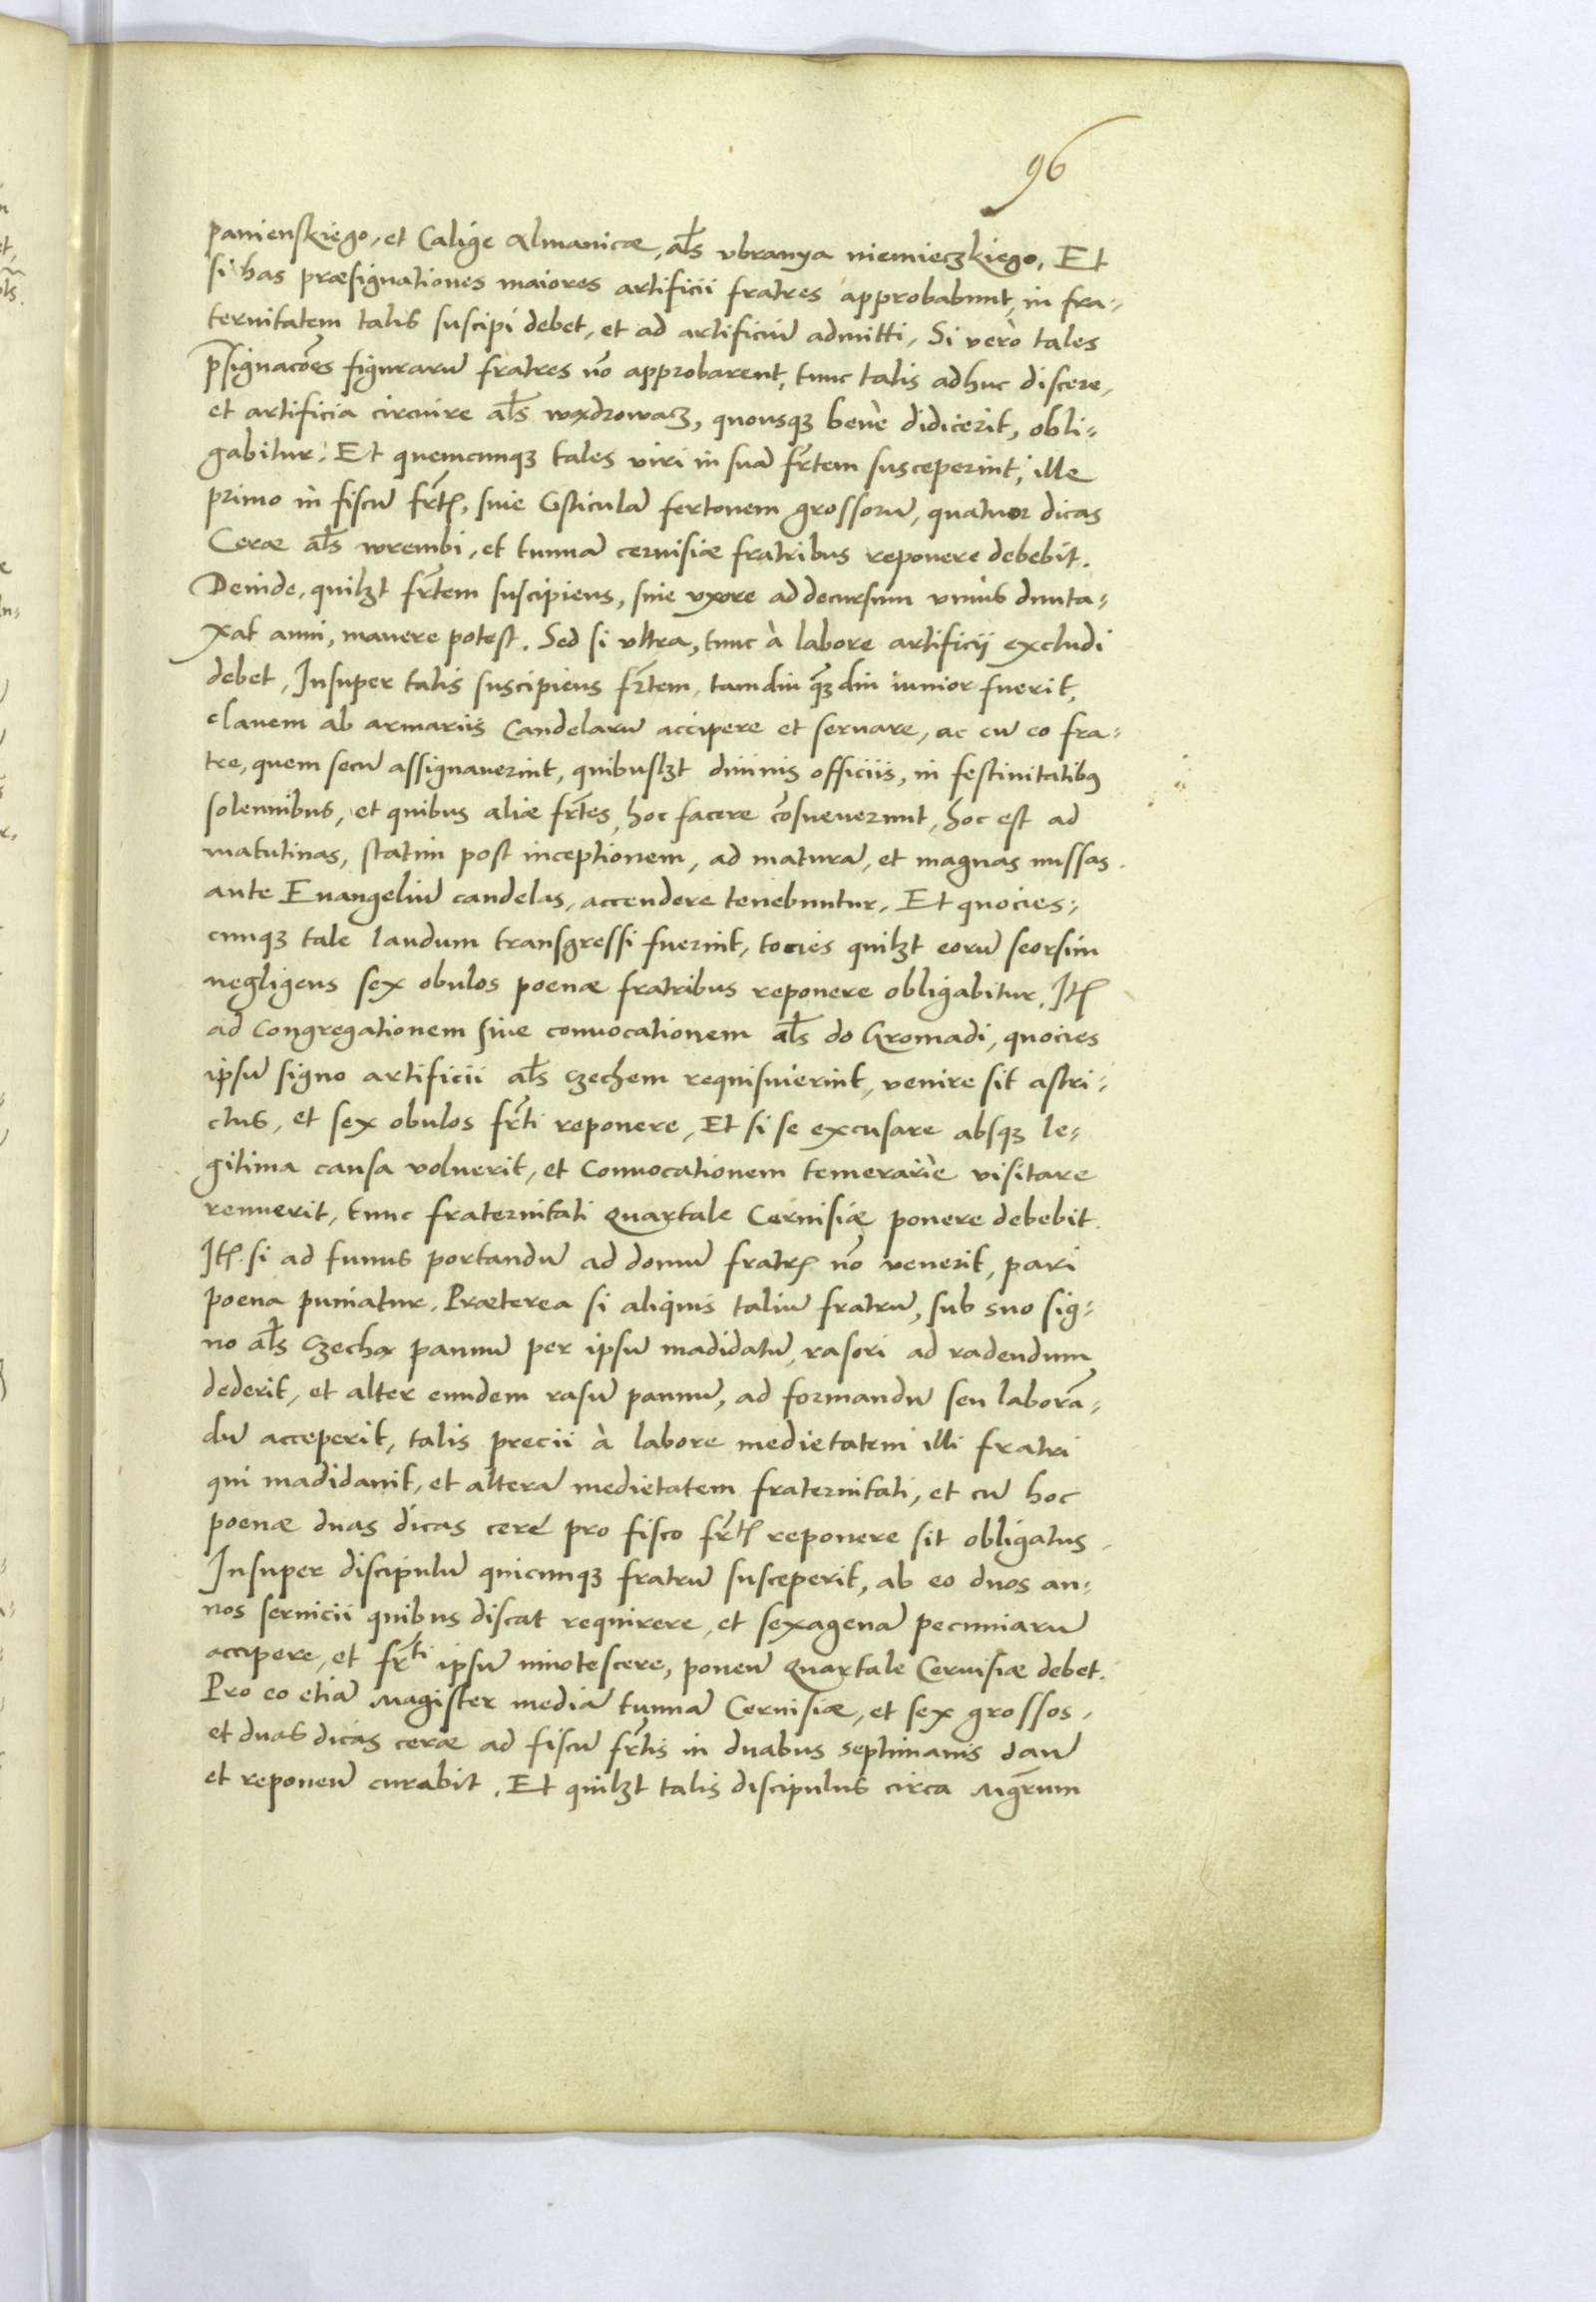 96
panienskiego, et Calige Almanicæ, al̃s vbranya niemieczkiego, Et
si has præsignationes maiores artificii fratres approbabunt, in fra-
ternitatem talis suscipi debet, et ad artificiũ admitti, Si verò tales
p̃signacões figurarũ fratres nõ approbarent, tunc talis adhuc discere,
et artificia circuire al̃s wxdrowacz, quousqꝫ benè didicerit, obli-
gabitur. Et quemcunqꝫ tales viri in suã fr̃tem susceperint, ille
primo in fiscũ fr̃tꝭ, siue Cisticulã fertonem grossorũ, quatuor dicas
Ceræ al̃s wrembi, et tunnã ceruisiæ fratribus reponere debebit.
Deinde, quilꝫt fr̃tem suscipiens, sine vxore ad decursum vnius dunta-
xat anni, manere potest. Sed si vltra, tunc à labore artificij excludi
debet, Insuper talis suscipiens fr̃tem, tamdiu qꝫ̃ diu iunior fuerit,
clauem ab armariis Candelarũ accipere et seruare, ac cũ eo fra-
tre, quem secũ assignauerint, quibuslꝫt diuinis officiis, in festiuitatibꝰ
solennibus, et quibus aliæ fr̃tes, hoc facere cõsueuerunt, hoc est ad
matutinas, statim post inceptionem, ad maturã, et magnas missas
ante Euangeliũ candelas, accendere tenebuntur, Et quocies-
cunqꝫ tale laudum transgressi fuerint, tocies quilꝫt eorũ seorsim
negligens sex obulos poenæ fratribus reponere obligabitur, Itꝭ
ad Congregationem siue conuocationem al̃s do Gromadi, quocies
ipsũ signo artificii al̃s czechem requisiuerint, venire sit astri-
ctus, et sex obulos fr̃ti reponere, Et si se excusare absqꝫ le-
gitima causa voluerit, et Conuocationem temerariè visitare
renuerit, tunc fraternitati Quartale Ceruisiæ ponere debebit.
Itꝭ. si ad funus portandũ ad domũ fratrꝭ nõ venerit, pari
poena puniatur. Præterea si aliquis taliũ fratrũ, sub suo sig-
no al̃s Czecha pannũ per ipsũ madidatũ, rasori ad radendum
dederit, et alter eundem rasũ pannũ, ad formandũ seu laborã-
dũ acceperit, talis precii à labore medietatem illi fratri
qui madidauit, et alterã medietatem fraternitati, et cũ hoc
poenæ duas dicas cere pro fisco fr̃tꝭ reponere sit obligatus.
Insuper discipulũ quicunqꝫ fratrũ susceperit, ab eo duos an-
nos seruicii quibus discat requirere, et sexagenã pecuniarũ
accipere, et fr̃ti ipsũ innotescere, ponen̄ Quartale Ceruisiæ debet.
Pro eo etiã Magister mediã tunnã Ceruisiæ, et sex grossos,
et duas dicas ceræ ad fiscũ fr̃tis in duabus septimanis dan̄
et reponen̄ curabit. Et quilꝫt talis discipulus circa Mg̃rum